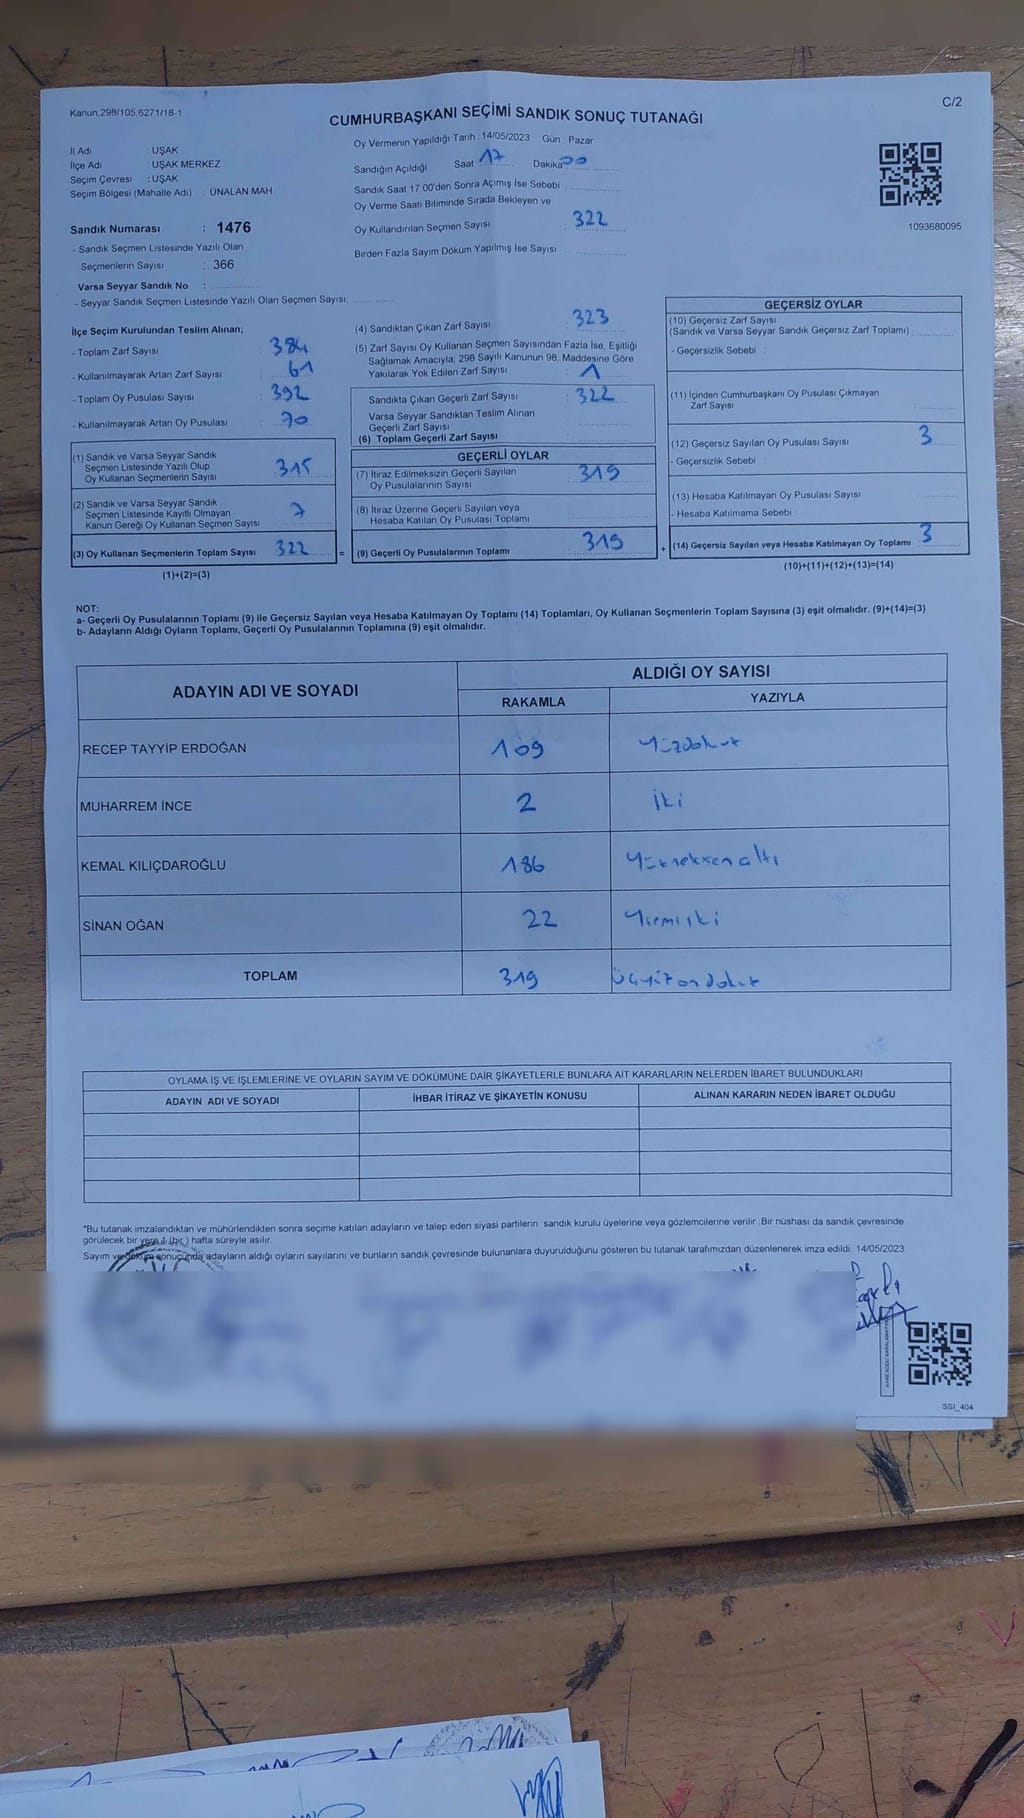 Kanun.298/105 6271/18-1
C/2
CUMHURBAŞKANI SEÇİMİ SANDIK SONUÇ TUTANAĞI
İl Adı : UŞAK
İlçe Adı : UŞAK MERKEZ
Seçim Çevresi : UŞAK
Seçim Bölgesi (Mahalle Adı) : ÜNALAN MAH.
Oy Vermenin Yapıldığı Tarih : 14/05/2023 Gün : Pazar
Sandığın Açıldığı Saat 17 Dakika 00
Sandık Saat 17:00'den Sonra Açımış İse Sebebi :
Oy Verme Saati Bitiminde Sırada Bekleyen ve
Oy Kullandırılan Seçmen Sayısı : 322
Birden Fazla Sayım Döküm Yapılmış İse Sayısı :
1093680095
Sandık Numarası : 1476
- Sandık Seçmen Listesinde Yazılı Olan
Seçmenlerin Sayısı : 366
Varsa Seyyar Sandık No :
- Seyyar Sandık Seçmen Listesinde Yazılı Olan Seçmen Sayısı:
İlçe Seçim Kurulundan Teslim Alınan;
- Toplam Zarf Sayısı : 384
- Kullanılmayarak Artan Zarf Sayısı : 61
- Toplam Oy Pusulası Sayısı : 392
- Kullanılmayarak Artan Oy Pusulası : 70
(1) Sandık ve Varsa Seyyar Sandık
Seçmen Listesinde Yazılı Olup
Oy Kullanan Seçmenlerin Sayısı : 315
(2) Sandık ve Varsa Seyyar Sandık
Seçmen Listesinde Kayıtlı Olmayan
Kanun Gereği Oy Kullanan Seçmen Sayısı : 7
(3) Oy Kullanan Seçmenlerin Toplam Sayısı : 322
(1)+(2)=(3)
(4) Sandıktan Çıkan Zarf Sayısı : 323
(5) Zarf Sayısı Oy Kullanan Seçmen Sayısından Fazla İse, Eşitliği
Sağlamak Amacıyla; 298 Sayılı Kanunun 98. Maddesine Göre
Yakılarak Yok Edilen Zarf Sayısı : 1
Sandıkta Çıkan Geçerli Zarf Sayısı : 322
Varsa Seyyar Sandıktan Teslim Alınan
Geçerli Zarf Sayısı :
(6) Toplam Geçerli Zarf Sayısı :
GEÇERLİ OYLAR
(7) İtiraz Edilmeksizin Geçerli Sayılan
Oy Pusulalarının Sayısı : 319
(8) İtiraz Üzerine Geçerli Sayılan veya
Hesaba Katılan Oy Pusulası Toplamı :
= (9) Geçerli Oy Pusulalarının Toplamı : 319
GEÇERSİZ OYLAR
(10) Geçersiz Zarf Sayısı
(Sandık ve Varsa Seyyar Sandık Geçersiz Zarf Toplamı) :
- Geçersizlik Sebebi :
(11) İçinden Cumhurbaşkanı Oy Pusulası Çıkmayan
Zarf Sayısı :
(12) Geçersiz Sayılan Oy Pusulası Sayısı : 3
- Geçersizlik Sebebi :
(13) Hesaba Katılmayan Oy Pusulası Sayısı :
- Hesaba Katılmama Sebebi :
+ (14) Geçersiz Sayılan veya Hesaba Katılmayan Oy Toplamı : 3
(10)+(11)+(12)+(13)=(14)
NOT:
a- Geçerli Oy Pusulalarının Toplamı (9) ile Geçersiz Sayılan veya Hesaba Katılmayan Oy Toplamı (14) Toplamları, Oy Kullanan Seçmenlerin Toplam Sayısına (3) eşit olmalıdır. (9)+(14)=(3)
b- Adayların Aldığı Oyların Toplamı, Geçerli Oy Pusulalarının Toplamına (9) eşit olmalıdır.
ADAYIN ADI VE SOYADI
ALDIĞI OY SAYISI
RAKAMLA YAZIYLA
RECEP TAYYİP ERDOĞAN 109 Yüzdokuz
MUHARREM İNCE 2 İki
KEMAL KILIÇDAROĞLU 186 Yüzseksenaltı
SİNAN OĞAN 22 Yirmiiki
TOPLAM 319 Üçyüzondokuz
OYLAMA İŞ VE İŞLEMLERİNE VE OYLARIN SAYIM VE DÖKÜMÜNE DAİR ŞİKAYETLERLE BUNLARA AİT KARARLARIN NELERDEN İBARET BULUNDUKLARI
ADAYIN ADI VE SOYADI İHBAR İTİRAZ VE ŞİKAYETİN KONUSU ALINAN KARARIN NEDEN İBARET OLDUĞU
*Bu tutanak imzalandıktan ve mühürlendikten sonra seçime katılan adayların ve talep eden siyasi partilerin sandık kurulu üyelerine veya gözlemcilerine verilir. Bir nüshası da sandık çevresinde
görülecek bir yere 1 (bir) hafta süreyle asılır.
Sayım ve döküm sonucunda adayların aldığı oyların sayılarını ve bunların sandık çevresinde bulunanlara duyurulduğunu gösteren bu tutanak tarafımızdan düzenlenerek imza edildi. 14/05/2023
SSI_404